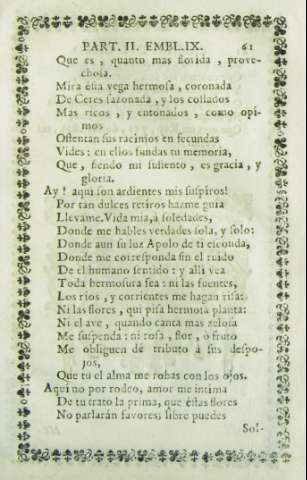 PART. II. EMBL. IX. 61
Que es , quanto mas florida , prove-
choſa.
Mira eſta vega hermoſa , coronada
De Ceres ſazonada , y los collados
Mas ricos , y entonados , como opi-
mos
Oſtentan ſus racimos en fecundas
Vides: en ellos fundas tu memoria,
Que , ſiendo mi ſuſtento , es gracia , y
gloria.
Ay ! aqui ſon ardientes mis ſuſpiros!
Por tan dulces retiros hazme guia
Llevame, Vida mia, à ſoledades,
Donde me hables verdades ſola, y ſolo:
Donde aun ſu luz Apolo de ti eſconda,
Donde me correſponda ſin el ruido
De el humano ſentido : y alli vea
Toda hermoſura fea : ni las fuentes,
Los rios , y corrientes me hagan riſa:
Ni las flores , que piſa hermoſa planta:
Ni el ave , quando canta mas zeloſa
Me ſuſpenda : ni roſa , flor , ò fruto
Me obliguen de tributo à ſus deſpo-
jos,
Que tu el alma me robas con los ojos.
Aqui no por rodeo, amor me intima
De tu trato la prima, que eſtas flores
No parlaràn favores; libre puedes
Sol-